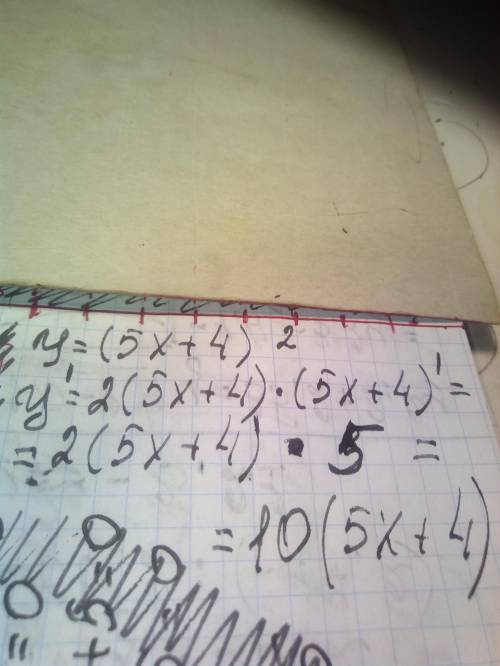 y = (5x+4)²
y' = 2(5x+4)·(5x+4)' =
= 2(5x+4) · 5 =
= 10(5x+4)